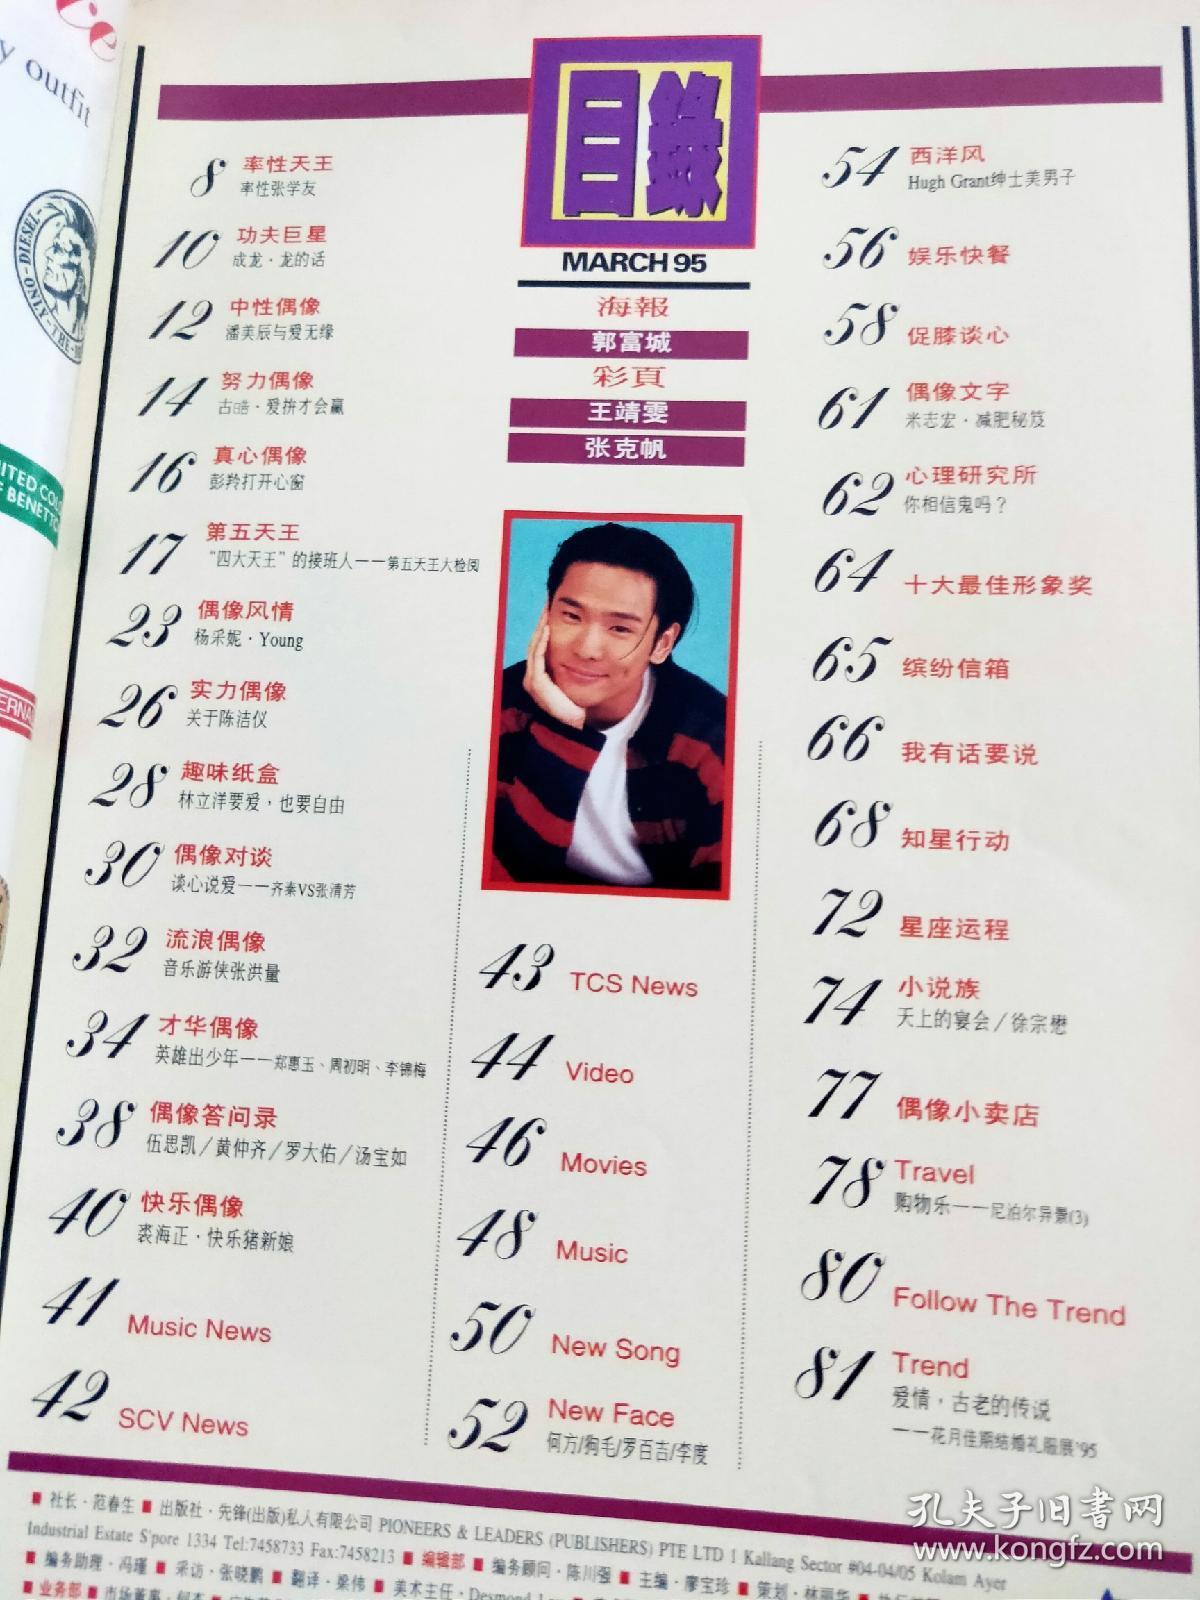 ce
y outfit
DIESEL
ONLY-THE-
ITED COL
F BENETTO
ERNA
目錄
MARCH 95
海報
郭富城
彩頁
王靖雯
张克帆
8 率性天王
率性张学友
10 功夫巨星
成龙·龙的话
12 中性偶像
潘美辰与爱无缘
14 努力偶像
古皓·爱拚才会赢
16 真心偶像
彭羚打开心窗
17 第五天王
“四大天王”的接班人——第五天王大检阅
23 偶像风情
杨采妮·Young
26 实力偶像
关于陈洁仪
28 趣味纸盒
林立洋要爱，也要自由
30 偶像对谈
谈心说爱——齐秦VS张清芳
32 流浪偶像
音乐游侠张洪量
34 才华偶像
英雄出少年——郑惠玉、周初明、李锦梅
38 偶像答问录
伍思凯/黄仲齐/罗大佑/汤宝如
40 快乐偶像
裘海正·快乐猪新娘
41 Music News
42 SCV News
43 TCS News
44 Video
46 Movies
48 Music
50 New Song
52 New Face
何方/狗毛/罗百吉/李度
54 西洋风
Hugh Grant绅士美男子
56 娱乐快餐
58 促膝谈心
61 偶像文字
米志宏·减肥秘笈
62 心理研究所
你相信鬼吗？
64 十大最佳形象奖
65 缤纷信箱
66 我有话要说
68 知星行动
72 星座运程
74 小说族
天上的宴会/徐宗懋
77 偶像小卖店
78 Travel
购物乐——尼泊尔异景(3)
80 Follow The Trend
81 Trend
爱情，古老的传说
——花月佳期结婚礼服展'95
■ 社长·范春生 ■ 出版社·先锋(出版)私人有限公司 PIONEERS & LEADERS (PUBLISHERS) PTE LTD 1 Kallang Sector #04-04/05 Kolam Ayer
Industrial Estate S'pore 1334 Tel:7458733 Fax:7458213 ■ 编辑部 ■ 编务顾问·陈川强 ■ 主编·廖宝珍 ■ 策划·林丽华
■ 编务助理·冯瑾 ■ 采访·张晓鹏 ■ 翻译·梁伟 ■ 美术主任·Desmond
■ 业务部 ■ 市场董事
孔夫子旧书网
www.kongfz.com